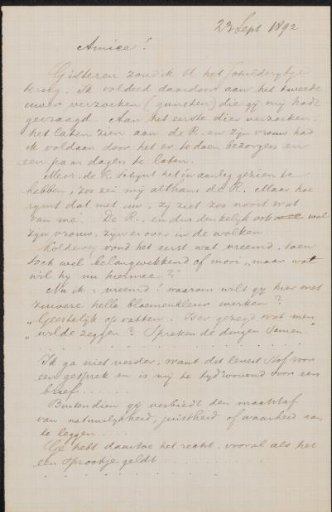 23 Sept 1892
Amice!
Gisteren zond ik U het schilderijtje
terug. Ik voldeed daardoor aan het tweede
uwer verzoeken (gunsten) die gij mij hadt
gevraagd. Aan het eerste dier verzoeken
het laten zien aan de R. en zijn vrouw had
ik voldaan door het er te doen bezorgen en
een paar dagen te laten.
Mevr. de R. schijnt het in aandag gezien te
hebben, zoo zei mij althans de R. Maar hoe
rijmt dat met uw, zij ziet zoo nooit wat
van me. De R. en dus denkelijk ook wel
zijn vrouw, zijn er over in de wolken
vond het eerst wat vreemd, toen
toch wel belangwekkend of mooi, "maar wat
wil hij nu hiermee?"
Na ik: vreemd! waarom wilt gij hier met
zuivere helle bloemenkleur werken?
"Geestelijk opvatten. Hoe gezegd wat men
wilde zeggen? Spreken de dingen samen"
Ik ga niet verder, want dit levert stof voor
een gesprek en is mij te tijdroovend voor een
brief.
Bovendien gij verbiedt den maatstaf
van natuurlijkheid, juistheid of waarheid aan
te leggen.
Ge hebt daartoe het recht, vooral als het
een sprookje geldt